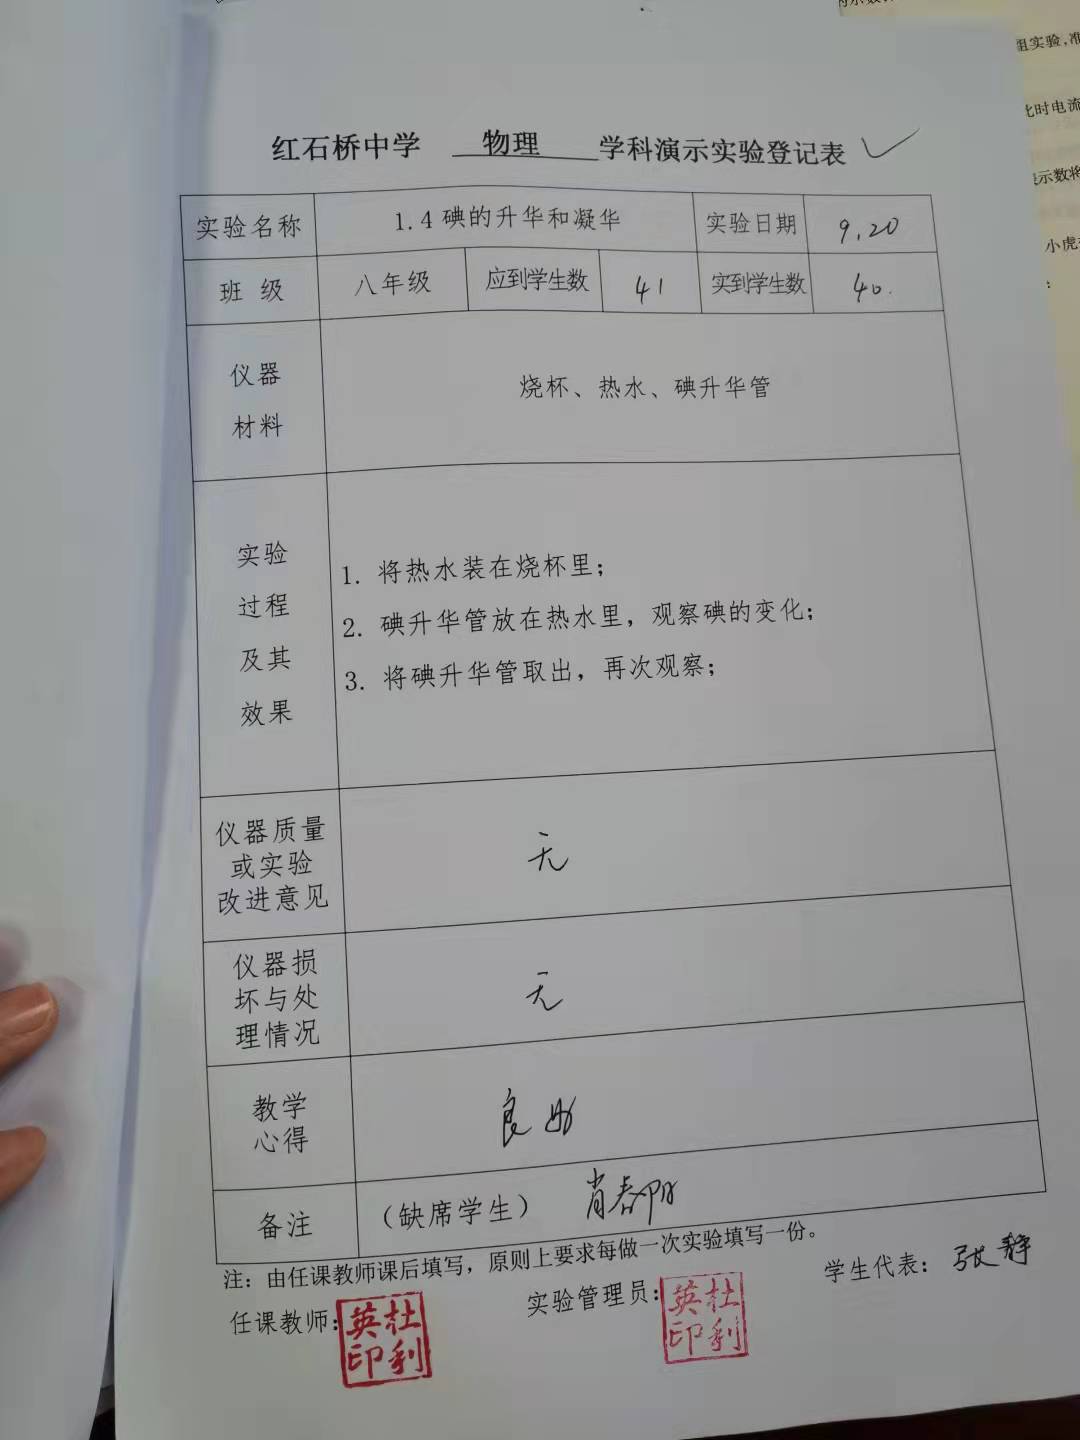 组实验,准
比时电流
小虎
红石桥中学 物理 学科演示实验登记表 ✓
实验名称 1.4 碘的升华和凝华 实验日期 9.20
班 级 八年级 应到学生数 41 实到学生数 40.
仪器
材料
烧杯、热水、碘升华管
实验
过程
及其
效果
1. 将热水装在烧杯里；
2. 碘升华管放在热水里，观察碘的变化；
3. 将碘升华管取出，再次观察；
仪器质量
或实验
改进意见
无
仪器损
坏与处
理情况
无
教学
心得
良好
备注 （缺席学生） 肖春阳
注：由任课教师课后填写，原则上要求每做一次实验填写一份。
任课教师： 实验管理员： 学生代表： 张静
英杜
印利
英杜
印利